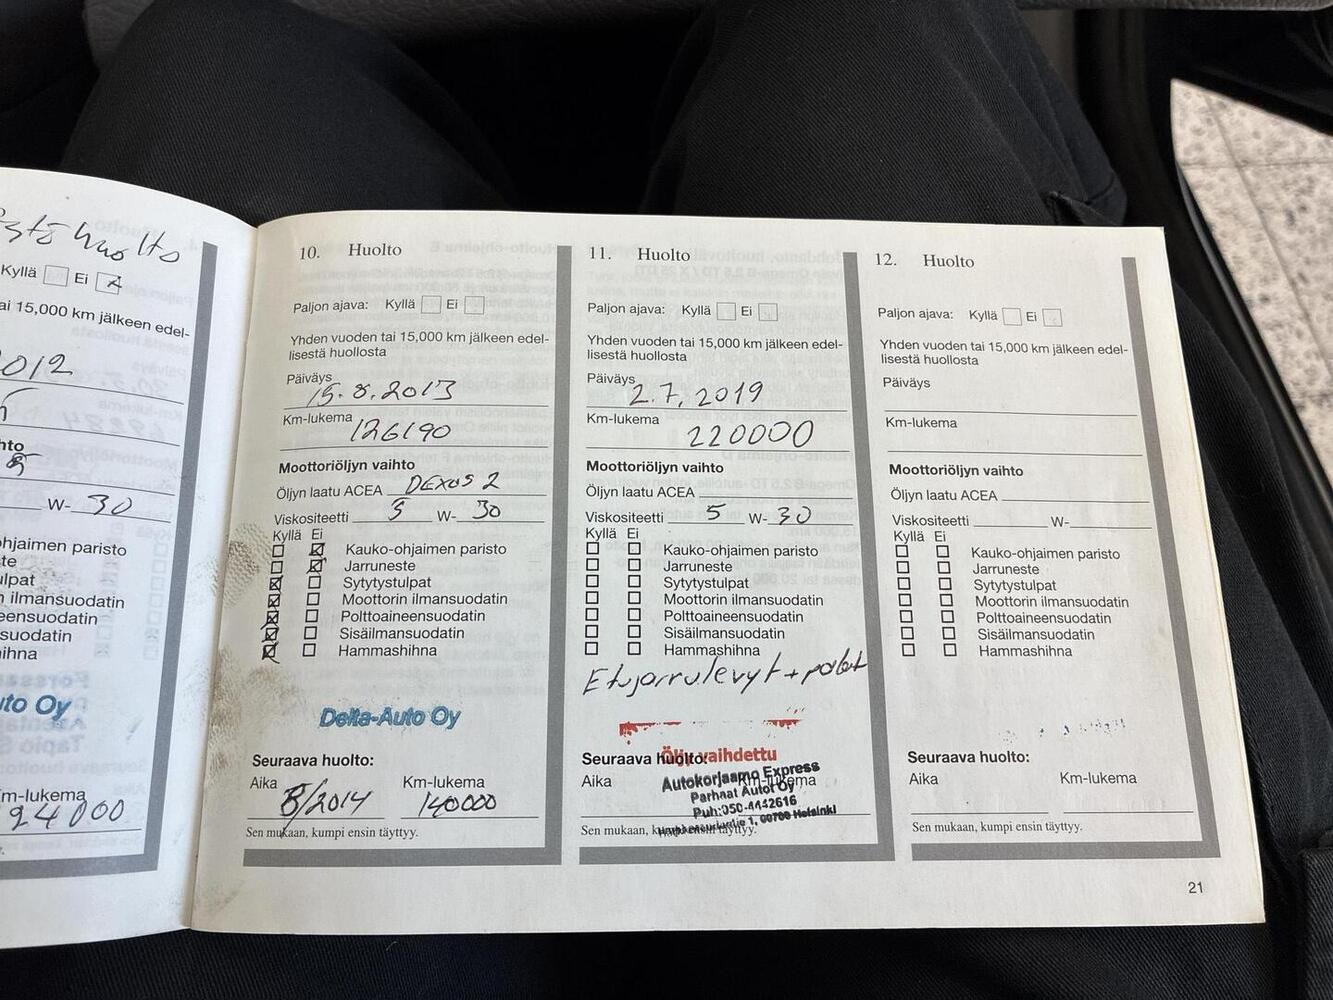 Kyllä Ei X
ai 15,000 km jälkeen edel-
2012
hto
5
W- 30
hjaimen paristo
ste
ulpat
n ilmansuodatin
eensuodatin
suodatin
ihna
uto Oy
m-lukema
24000
10. Huolto
Paljon ajava: Kyllä Ei
Yhden vuoden tai 15,000 km jälkeen edel-
lisestä huollosta
Päiväys
15.8.2013
Km-lukema
126190
Moottoriöljyn vaihto
Öljyn laatu ACEA DEXOS 2
Viskositeetti 5 W- 30
Kyllä Ei
Kauko-ohjaimen paristo
Jarruneste
Sytytystulpat
Moottorin ilmansuodatin
Polttoaineensuodatin
Sisäilmansuodatin
Hammashihna
Delta-Auto Oy
Seuraava huolto:
Aika Km-lukema
8/2014 140000
Sen mukaan, kumpi ensin täyttyy.
11. Huolto
Paljon ajava: Kyllä Ei
Yhden vuoden tai 15,000 km jälkeen edel-
lisestä huollosta
Päiväys
2.7.2019
Km-lukema
220000
Moottoriöljyn vaihto
Öljyn laatu ACEA
Viskositeetti 5 W- 30
Kyllä Ei
Kauko-ohjaimen paristo
Jarruneste
Sytytystulpat
Moottorin ilmansuodatin
Polttoaineensuodatin
Sisäilmansuodatin
Hammashihna
Etujarrulevyt + palat
Öljy vaihdettu
Seuraava huolto:
Autokorjaamo Express
Aika Km-lukema
Parhaat Autot Oy
Puh:050-4442616
1, 00700 Helsinki
Sen mukaan, kumpi ensin täyttyy.
12. Huolto
Paljon ajava: Kyllä Ei
Yhden vuoden tai 15,000 km jälkeen edel-
lisestä huollosta
Päiväys
Km-lukema
Moottoriöljyn vaihto
Öljyn laatu ACEA
Viskositeetti W-
Kyllä Ei
Kauko-ohjaimen paristo
Jarruneste
Sytytystulpat
Moottorin ilmansuodatin
Polttoaineensuodatin
Sisäilmansuodatin
Hammashihna
Seuraava huolto:
Aika Km-lukema
Sen mukaan, kumpi ensin täyttyy.
21